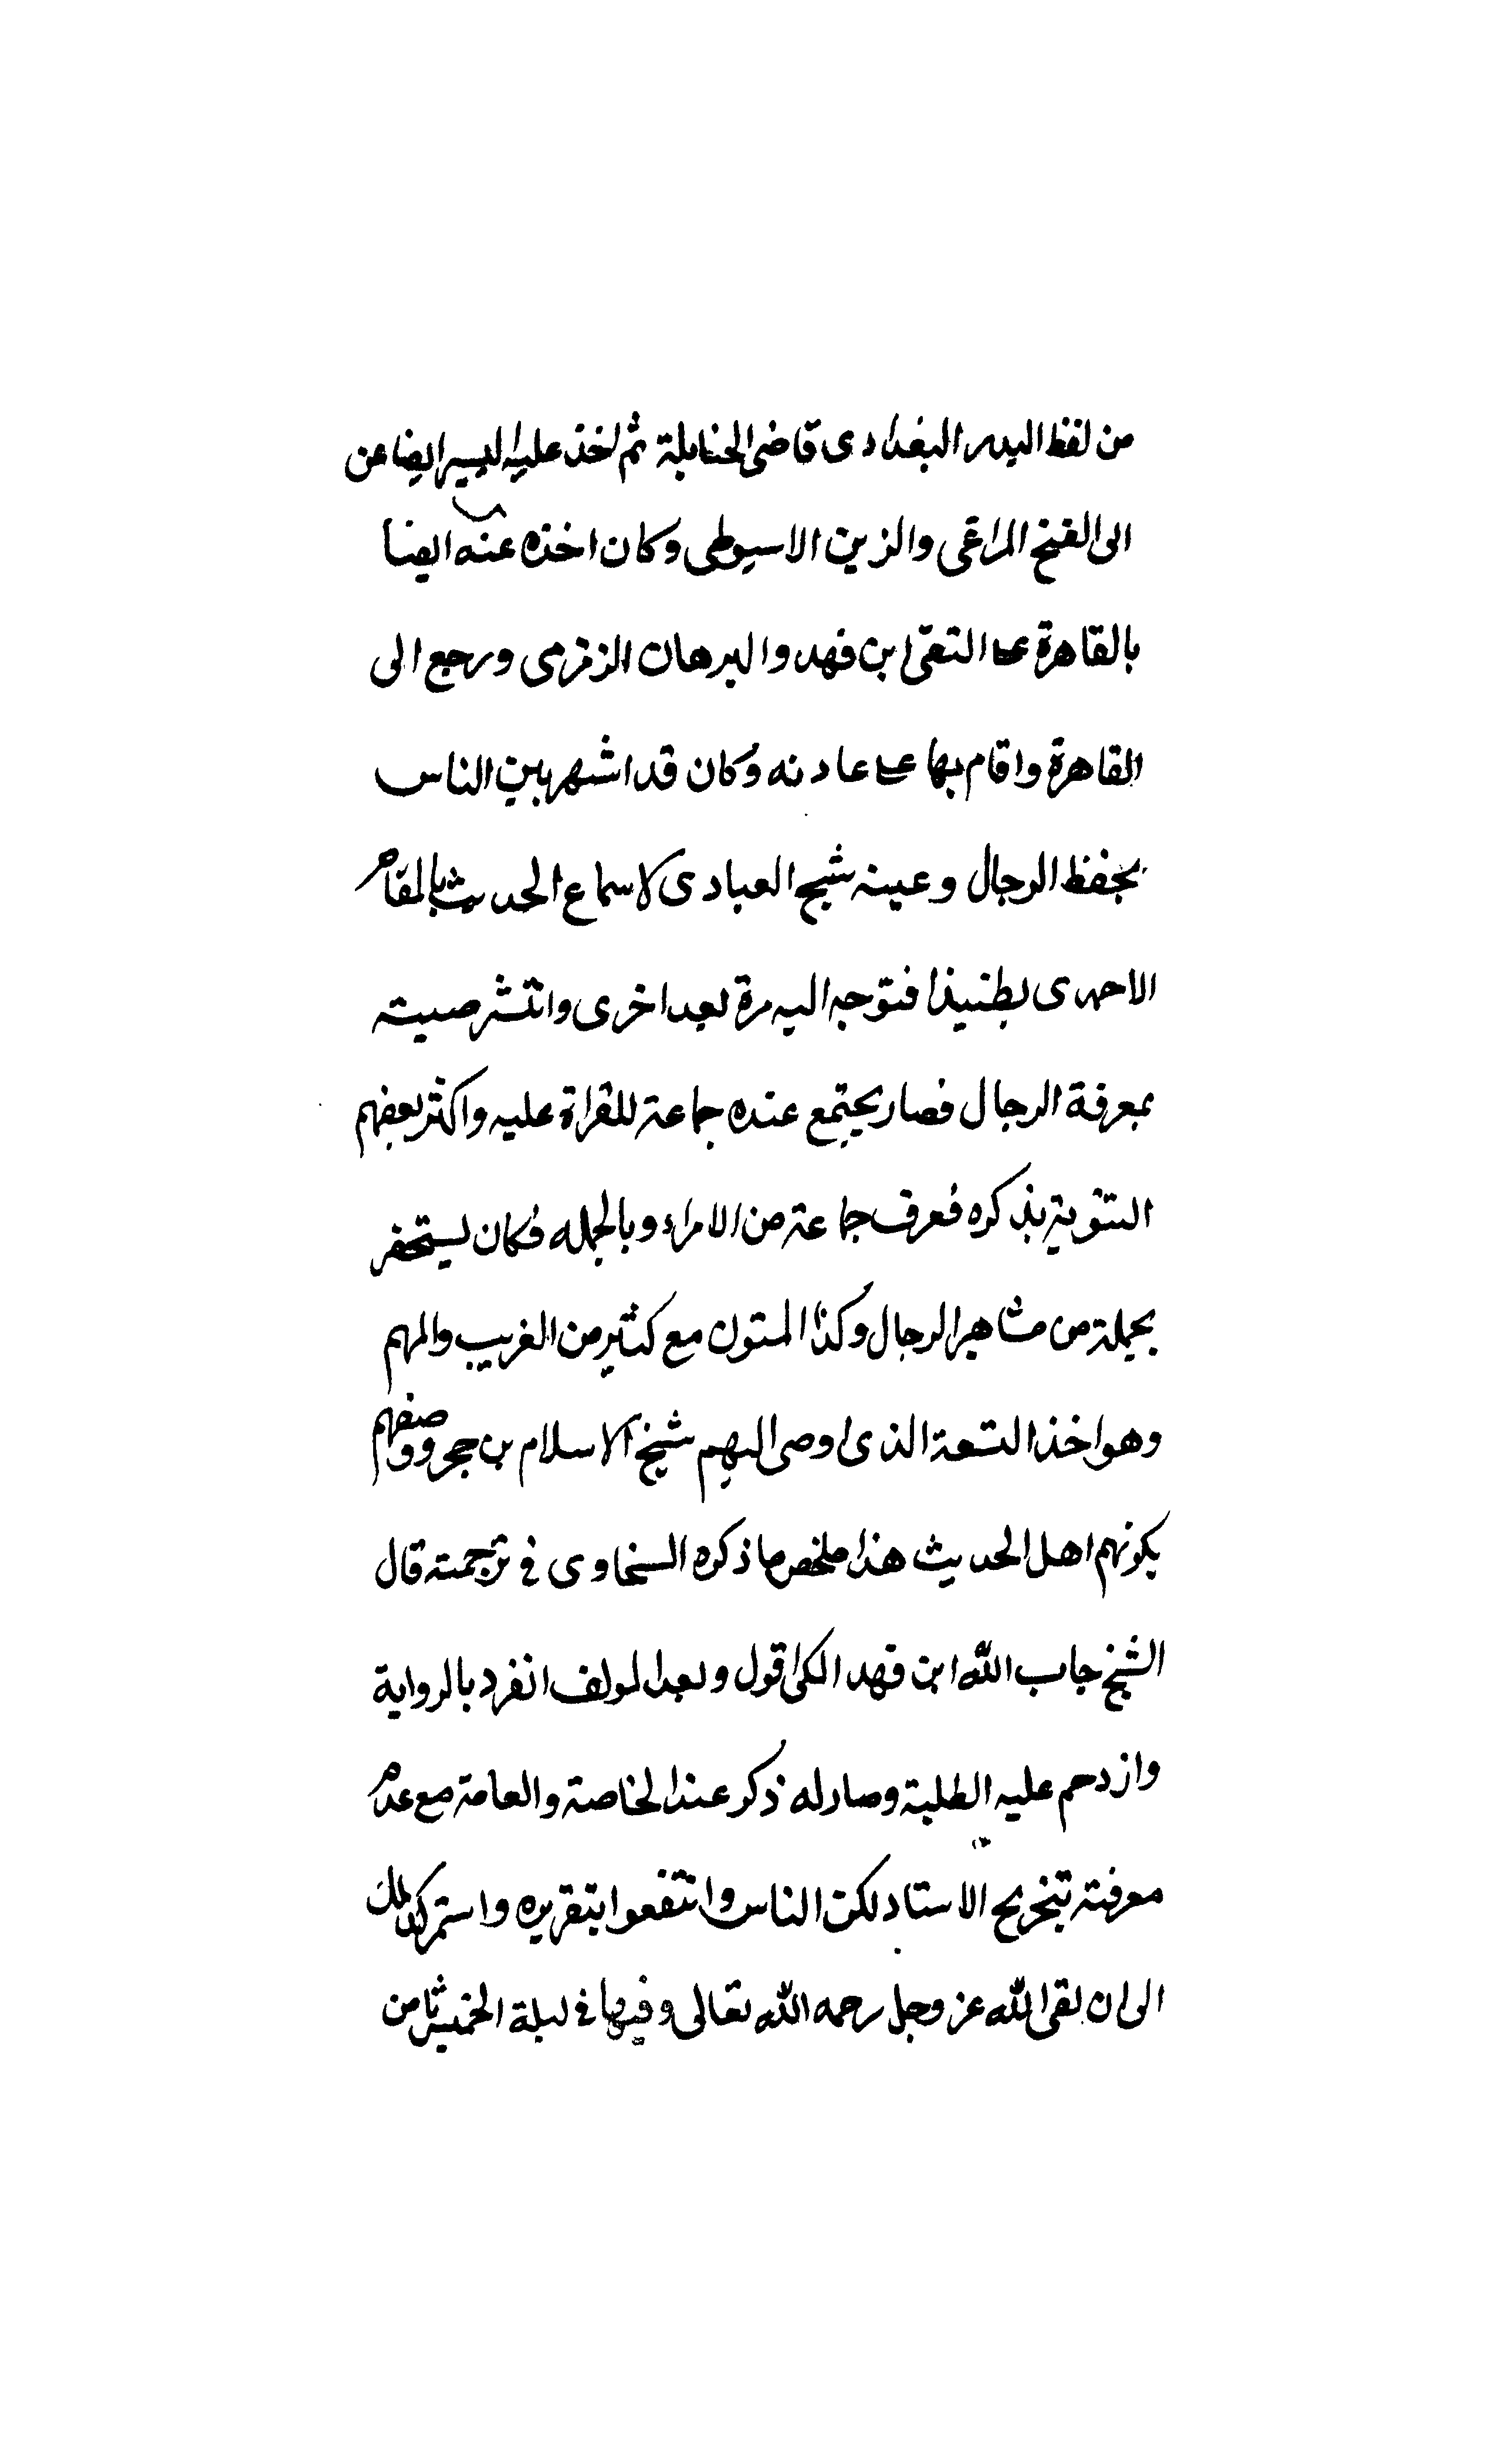 من لفظ البدر البغدادى قاضى الحنابلة ثم اخذ عليه اليسير ايضا عن
الى الفتح المراغى والزين الاسيوطى وكان اخذه عنه ايضا
بالقاهرة على التقى ابن فهد والبرهان الزمزمى ورجع الى
القاهرة واقام بها على عادته وكان قد اشهر بين الناس
بحفظ الرجال وعينه شيخ العبادى لاسماع الحديث بالمقام
الاحمدى بطنيذا فتوجه اليه مرة بعد اخرى وانتشر صيته
بمعرفة الرجال فصار يجتمع عنده جماعة للقراة عليه واكثر بعضهم
التنوية بذكره فعرف جماعة من الامراء وبالجمله فكان يستحضر
بجملة من مشاهير الرجال وكذا المتون مع كثير من الغريب والمهم
وهو اخذ التسعة الذى اوصى اليهم شيخ الاسلام بن حجر ووصفهم
بكونهم اهل الحديث هذا ملخص ما ذكره السخاوى في ترجمته قال
الشيخ جاب الله ابن فهد المكى اقول وبعد المولف انفرد بالرواية
وازدحم عليه الطلبة وصار له ذكر عند الخاصة والعامة مع عدم
معرفته تبخريج الاستاد لكن الناس وانتفعوا بتقريره واستمر كذلك
الى ان لقى الله عز وجل رحمه الله تعالى وفيها في ليلة الخميس ثامن